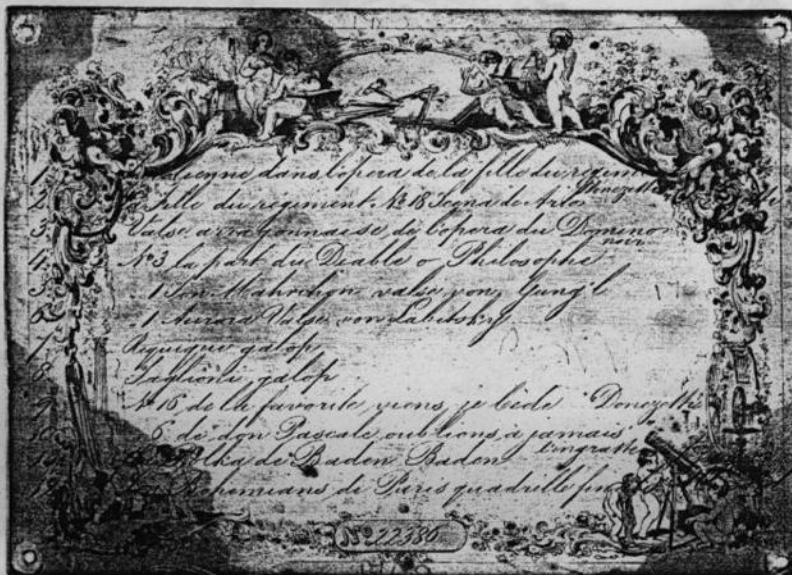 1 dans l'opera de la fille du regim
2 fille du regiment. No 18 Scena de Artos
3 Valse arragonnaise de l'opera du Domino noir
4 No 3 la part du Diable o Philosophe
5 " 1 valse von Gung'l
6 " 1 Aurora Valse von Labitsky
7 galop
8 Taglioni, galop
9 No 16 de la favorite, viens, je cède Donezetti
6 de don Pascale, oublions à jamais l'ingratte
Polka de Baden Baden
Bohemians de Paris quadrille
No 22386